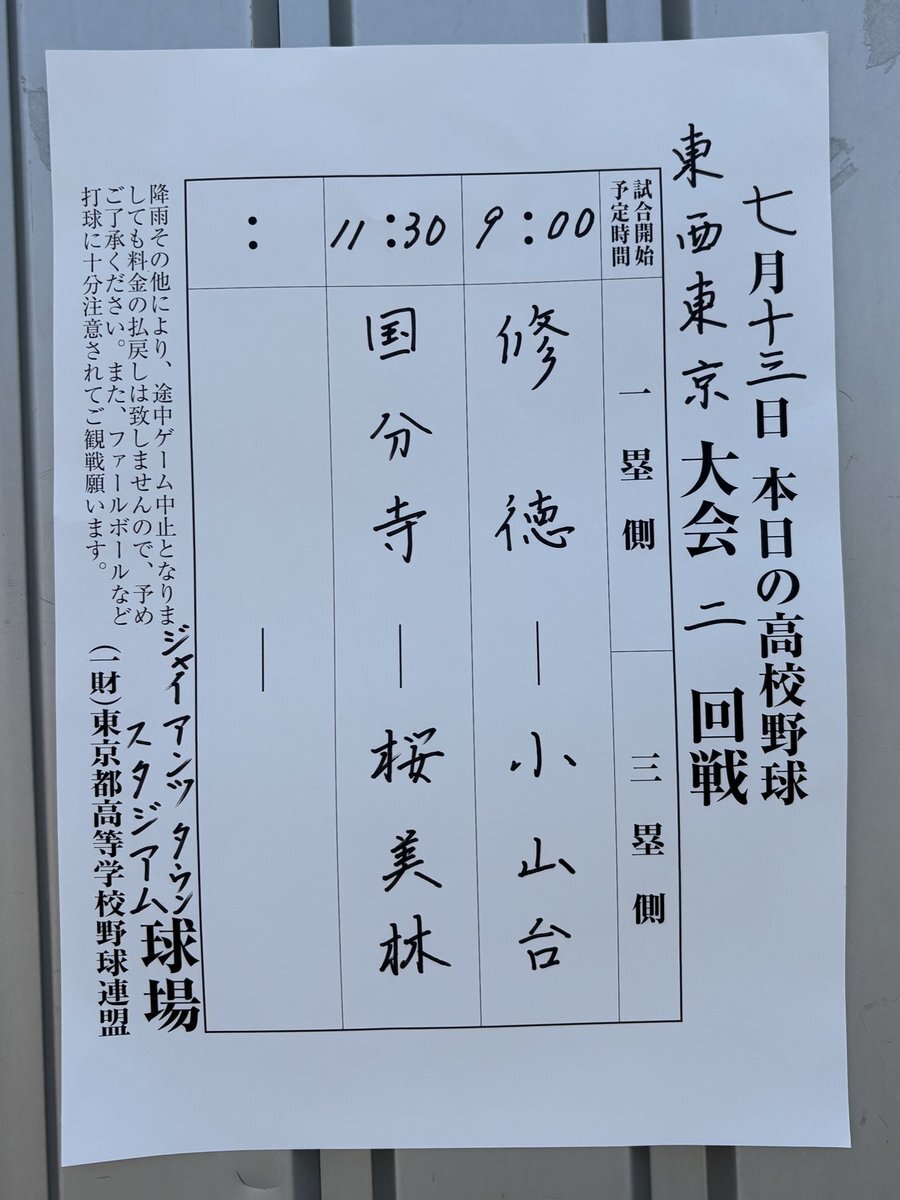 七月十三日 本日の高校野球
東西東京大会 二 回戦
試合開始
予定時間
一塁側
三塁側
9:00 修徳―小山台
11:30 国分寺―桜美林
: ―
降雨その他により、途中ゲーム中止となりま
しても料金の払戻しは致しませんので、予め
ご了承ください。また、ファールボールなど
打球に十分注意されてご観戦願います。
ジャイアンツタウン
スタジアム球場
(一財)東京都高等学校野球連盟